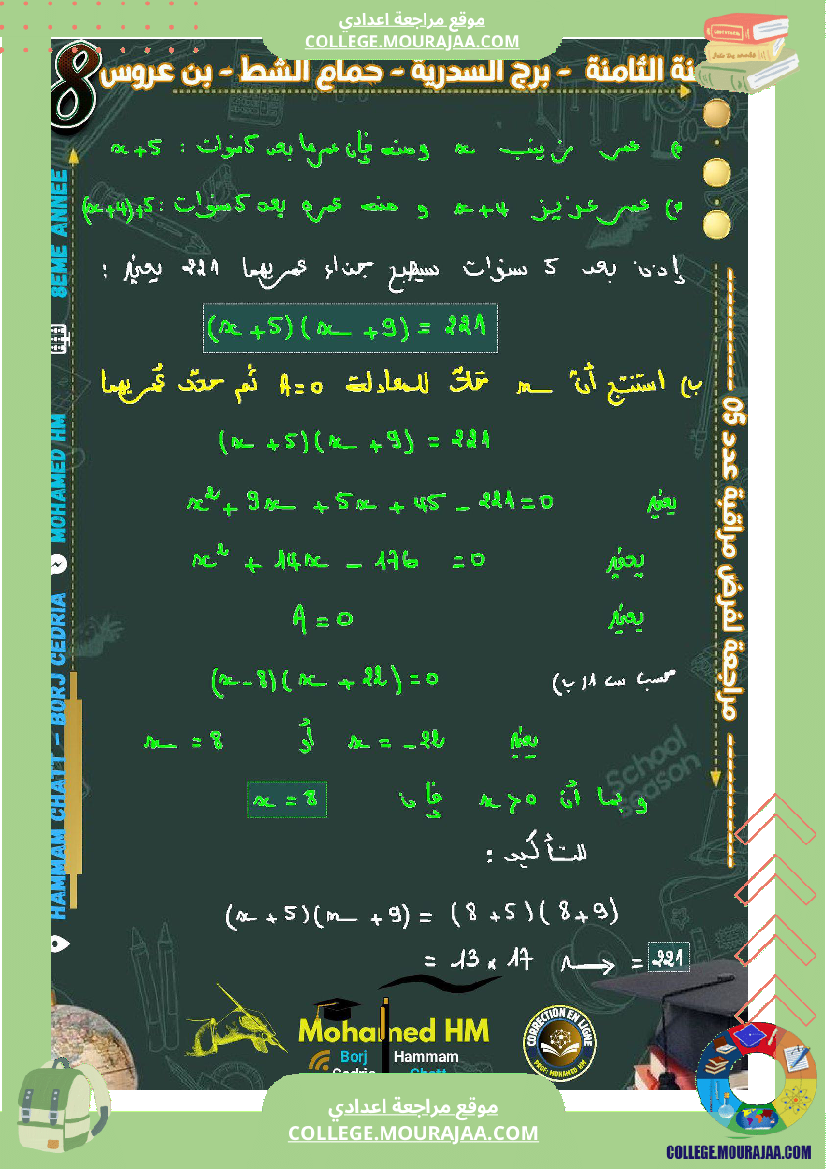 موقع مراجعة اعدادي
COLLEGE.MOURAJAA.COM
8
نة الثامنة - برج السدرية - حمام الشط - بن عروس
عمر زينب x ومنه فإن عمرها بعد 5 سنوات : x+5
عمر عزيز x+4 و منه عمره بعد 5 سنوات : (x+4)+5
إذن بعد 5 سنوات سيصبح جذاء عمريهما 221 يعني :
(x+5)(x+9) = 221
ب) استنتج أن x حلّ للمعادلة A=0 ثم حدّد عمريهما
(x+5)(x+9) = 221
يعني x²+ 9x + 5x + 45 - 221 = 0
يعني x² + 14x - 176 = 0
يعني A = 0
حسب (ب (x-8)(x+22) = 0
يعني x = -22 أو x = 8
و بما أن x > 0 فإن x = 8
للتأكيد :
(x+5)(x+9) = (8+5)(8+9)
= 13 x 17 = 221
8EME ANNEE
MOHAMED HM
HAMMAM CHATT - BORJ CEDRIA
مراجعة لفرض مراقبة عدد 05
School Season
Mohamed HM
Borj Hammam
CORRECTION EN LIGNE
PROF MOHAMED HM
موقع مراجعة اعدادي
COLLEGE.MOURAJAA.COM
COLLEGE.MOURAJAA.COM